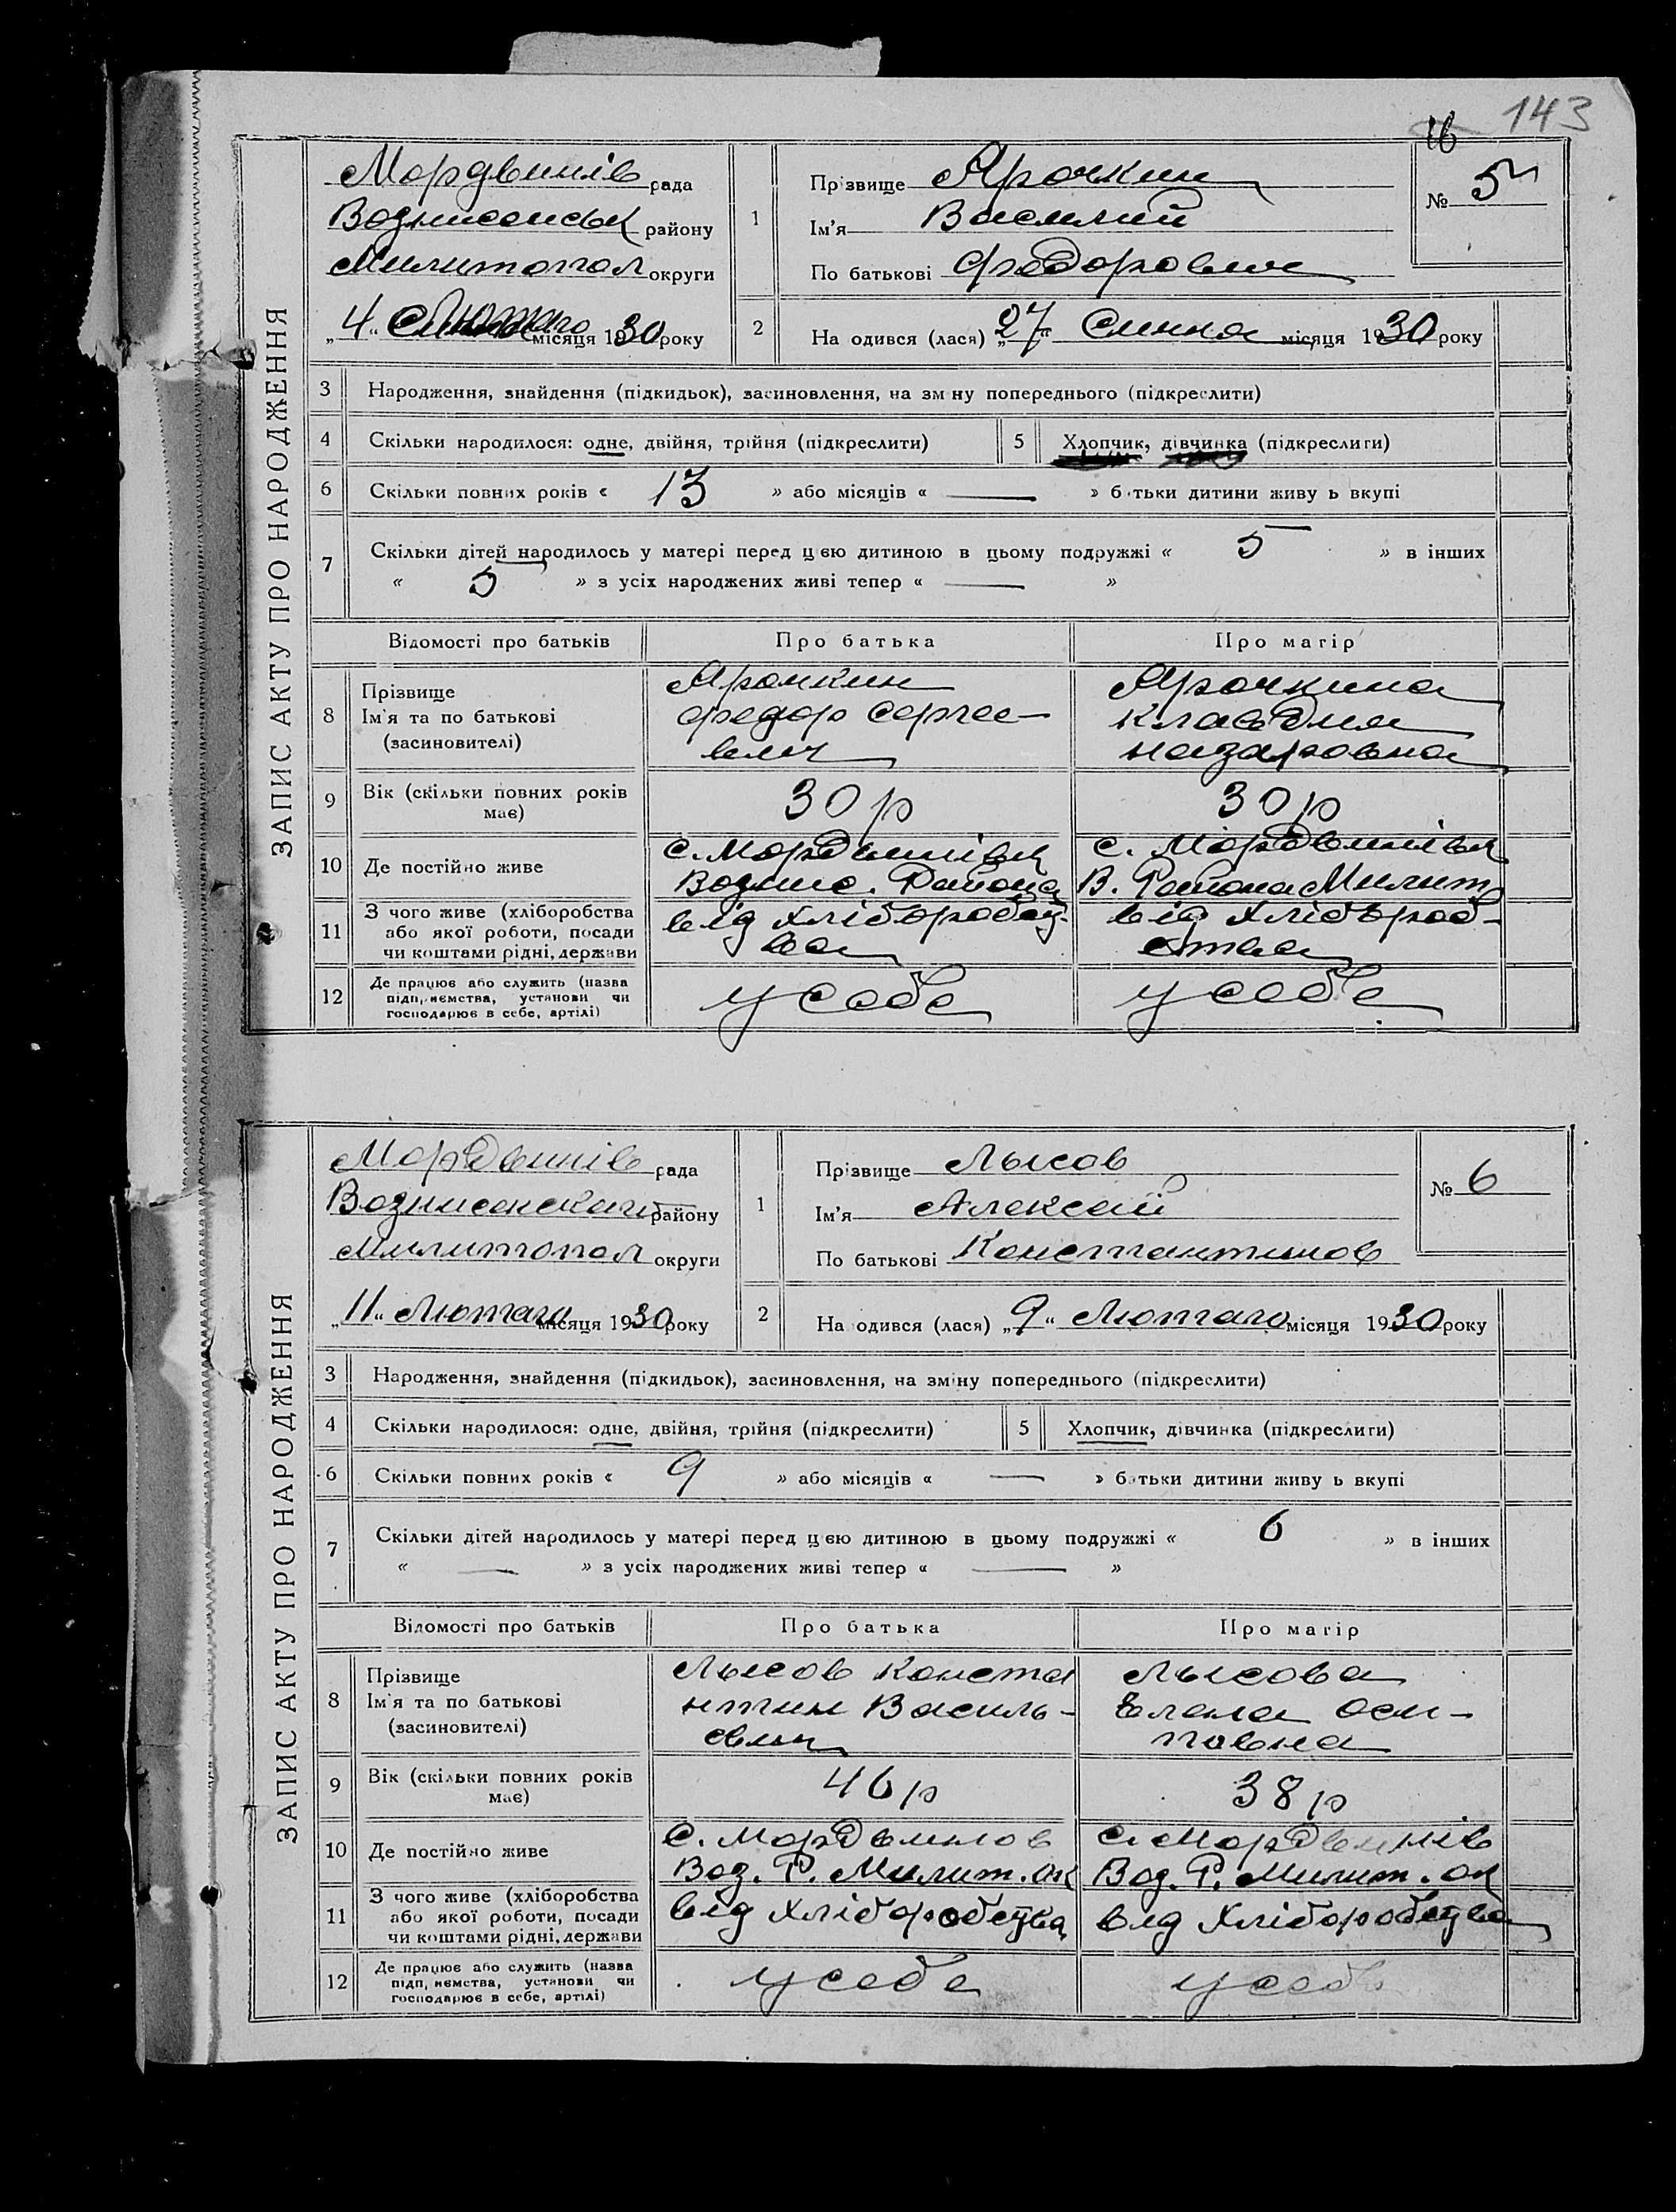 143
16
ЗАПИС АКТУ ПРО НАРОДЖЕННЯ
Мордвинів рада
Вознисенськ району
Милитопол округи
„4“ Лютаго місяця 1930 року
1 Прізвище Ярочкин
Ім'я Василий
По батькові Федорович
№ 5
2 На одився (лася) „27“ Сичня місяця 1930 року
3 Народження, знайдення (підкидьок), засиновлення, на зм ну попереднього (підкреслити)
4 Скільки народилося: одне, двійня, трійня (підкреслити) 5 Хлопчик, дівчинка (підкреслиги)
6 Скільки повних років « 13 » або місяців « — » б тьки дитини живу ь вкупі
7 Скільки дітей народилось у матері перед цею дитиною в цьому подружжі « 5 » в інших
« 5 » з усіх народжених живі тепер « — »
Відомості про батьків Про батька Про магір
8 Прізвище
Ім'я та по батькові
(засиновителі)
Ярочкин
Федор Сергее-
вич
Ярочкина
Клавдия
Назаровна
9 Вік (скільки повних років
має)
30 р
30 р
10 Де постійно живе
с. Мордвинівк
Вознис. Района
с. Мордвинівк
В. Района Милит
11 З чого живе (хліборобства
або якої роботи, посади
чи коштами рідні, держави
від хлібороб
ва
від хлібороб-
ства
12 Де працює або служить (назва
підп, иємства, установи чи
господарює в себе, артілі)
у себе
у себе
ЗАПИС АКТУ ПРО НАРОДЖЕННЯ
Мордвинів рада
Вознисенскаго району
Милитопол округи
„11“ Лютаго місяця 1930 року
1 Прізвище Лысов
Ім'я Алексей
По батькові Константинов
№ 6
2 На одився (лася) „9“ Лютаго місяця 1930 року
3 Народження, знайдення (підкидьок), засиновлення, на зміну попереднього (підкреслити)
4 Скільки народилося: одне, двійня, трійня (підкреслити) 5 Хлопчик, дівчинка (підкреслиги)
6 Скільки повних років « 9 » або місяців « — » батьки дитини живу ь вкупі
7 Скільки дітей народилось у матері перед цею дитиною в цьому подружжі « 6 » в інших
« — » з усіх народжених живі тепер « — »
Відомості про батьків Про батька Про магір
8 Прізвище
Ім'я та по батькові
(засиновителі)
Лысов Конста
нтин Василь-
евич
Лысова
Елена Оси-
повна
9 Вік (скільки повних років
має)
46 р
38 р
10 Де постійно живе
с. Мордвинов
Воз. Р. Милит. ок
с. Мордвинів
Воз. Р. Милит. ок
11 З чого живе (хліборобства
або якої роботи, посади
чи коштами рідні, держави
від хліборобства
від хліборобства
12 Де працює або служить (назва
підп, иємства, установи чи
господарює в себе, артілі)
у себе
у себе